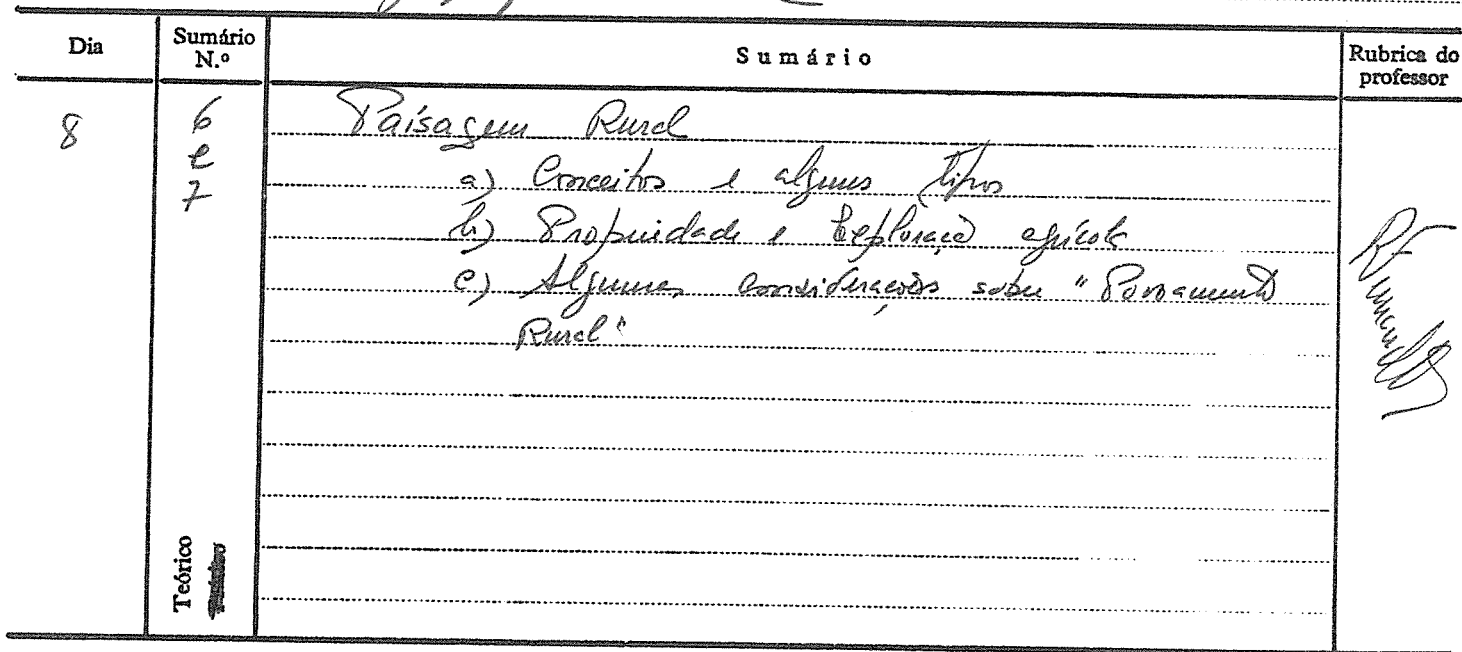 Dia
Sumário N.º
Sumário
Rubrica do professor
8
6 e 7
Paísagem Rural
a) Conceitos e alguns tipos
b) Propriedade e Exploração agrícola
c) Algumas considerações sobre "Povoamento
Rural"
Teórico